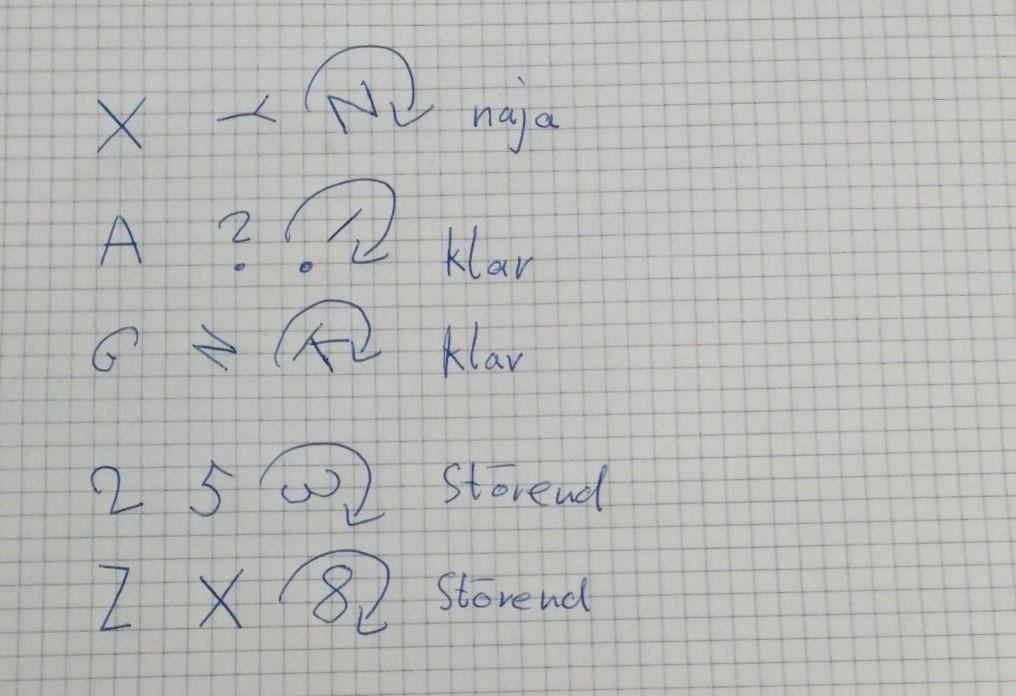 X Y N naja
A ? ! klar
G Z K klar
2 5 3 Störend
Z X 8 Störend